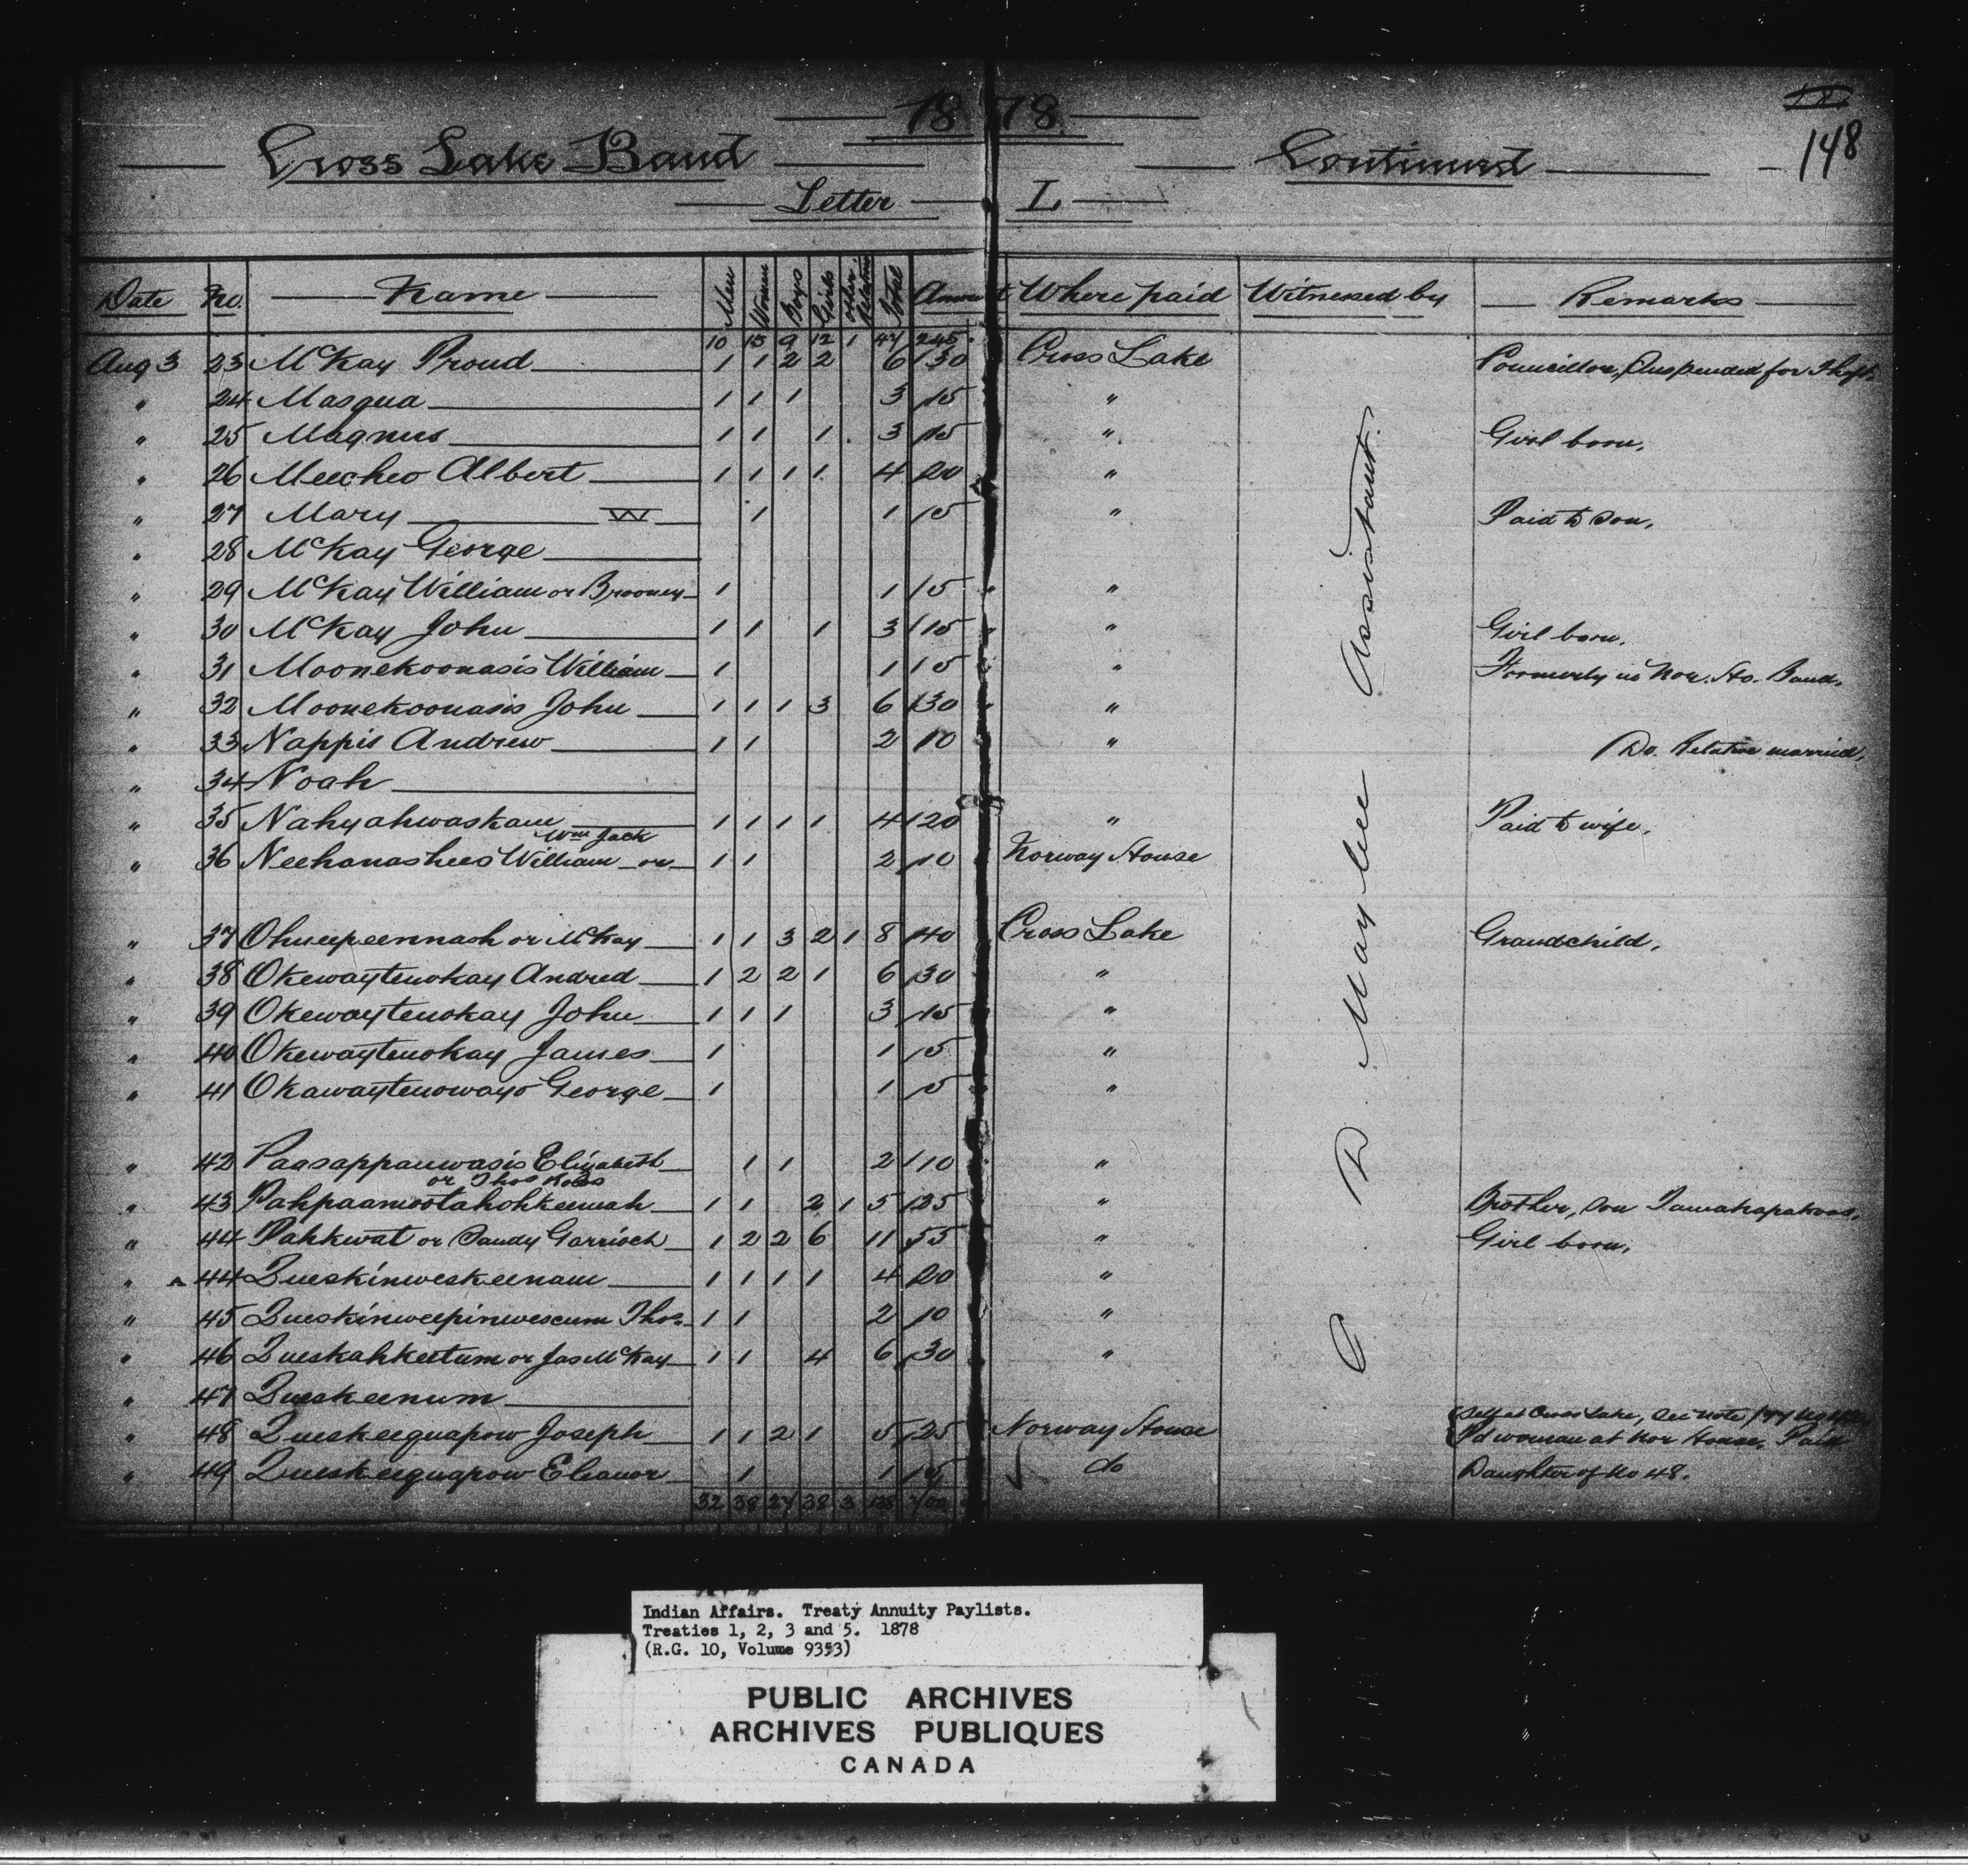 1878
148
Cross Lake Band Continued
Letter L
Date No. Name Men Women Boys Girls Other Relatives Total Amount Where paid Witnessed by Remarks
10 15 9 12 1 47 245
Aug 3 23 McKay Proud 1 1 2 2 6 30 Cross Lake Councillor, Suspended for Theft.
" 24 Masqua 1 1 1 3 15 "
" 25 Magnus 1 1 1 3 15 " Girl born.
" 26 Meecheo Albert 1 1 1 1 4 20 "
" 27 Mary W 1 1 5 " Paid to son.
" 28 McKay George
" 29 McKay William or Brooney 1 1 5 "
" 30 McKay John 1 1 1 3 15 " Girl born.
" 31 Moonekoonasis William 1 1 5 " Formerly in Nor. Ho. Band.
" 32 Moonekoonasis John 1 1 1 3 6 30 "
" 33 Nappis Andrew 1 1 2 10 " Do. Relative married.
" 34 Noah
" 35 Nahyahwaskam 1 1 1 1 4 20 " Paid to wife.
Wm Jack
" 36 Neehanashees William or 1 1 2 10 Norway House
" 37 Ohueepeennash or McKay 1 1 3 2 1 8 40 Cross Lake Grandchild.
" 38 Okewaytenokay Andred 1 2 2 1 6 30 "
" 39 Okewaytenokay John 1 1 1 3 15 "
" 40 Okewaytenokay James 1 1 5 "
" 41 Okawaytenowayo George 1 1 5 "
" 42 Paasappanwasis Elizabeth 1 1 2 10 "
or Thos Ross
" 43 Pahpaamootahohkeemah 1 1 2 1 5 25 " Brother, son
" 44 Pahkwat or Sandy Garrioch 1 2 2 6 11 55 " Girl born.
" A 44 Queskinweskeenam 1 1 1 1 4 20 "
" 45 Queskinweepinwescum Thos. 1 1 2 10 "
" 46 Queskahkeetum or Jas McKay 1 1 4 6 30 "
" 47 Queskeenum
Self at Cross Lake, See note
" 48 Queskeequapow Joseph 1 1 2 1 5 25 Norway House Pd woman at Nor House. Paid
" 49 Queskeequapow Eleanor 1 1 5 do Daughter of No 48.
32 38 27 38 3 138 700
C. D. Maybee Assistant.
Indian Affairs. Treaty Annuity Paylists.
Treaties 1, 2, 3 and 5. 1878
(R.G. 10, Volume 9353)
PUBLIC ARCHIVES
ARCHIVES PUBLIQUES
CANADA